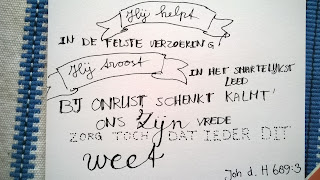 Hij helpt
IN DE FELSTE VERZOEKING!
Hij troost
IN HET SMARTELIJKST
LEED
BIJ ONRUST, SCHENKT KALMT'
ONS Zijn VREDE
ZORG TOCH, DAT IEDER DIT
weet
Joh d. H 689:3